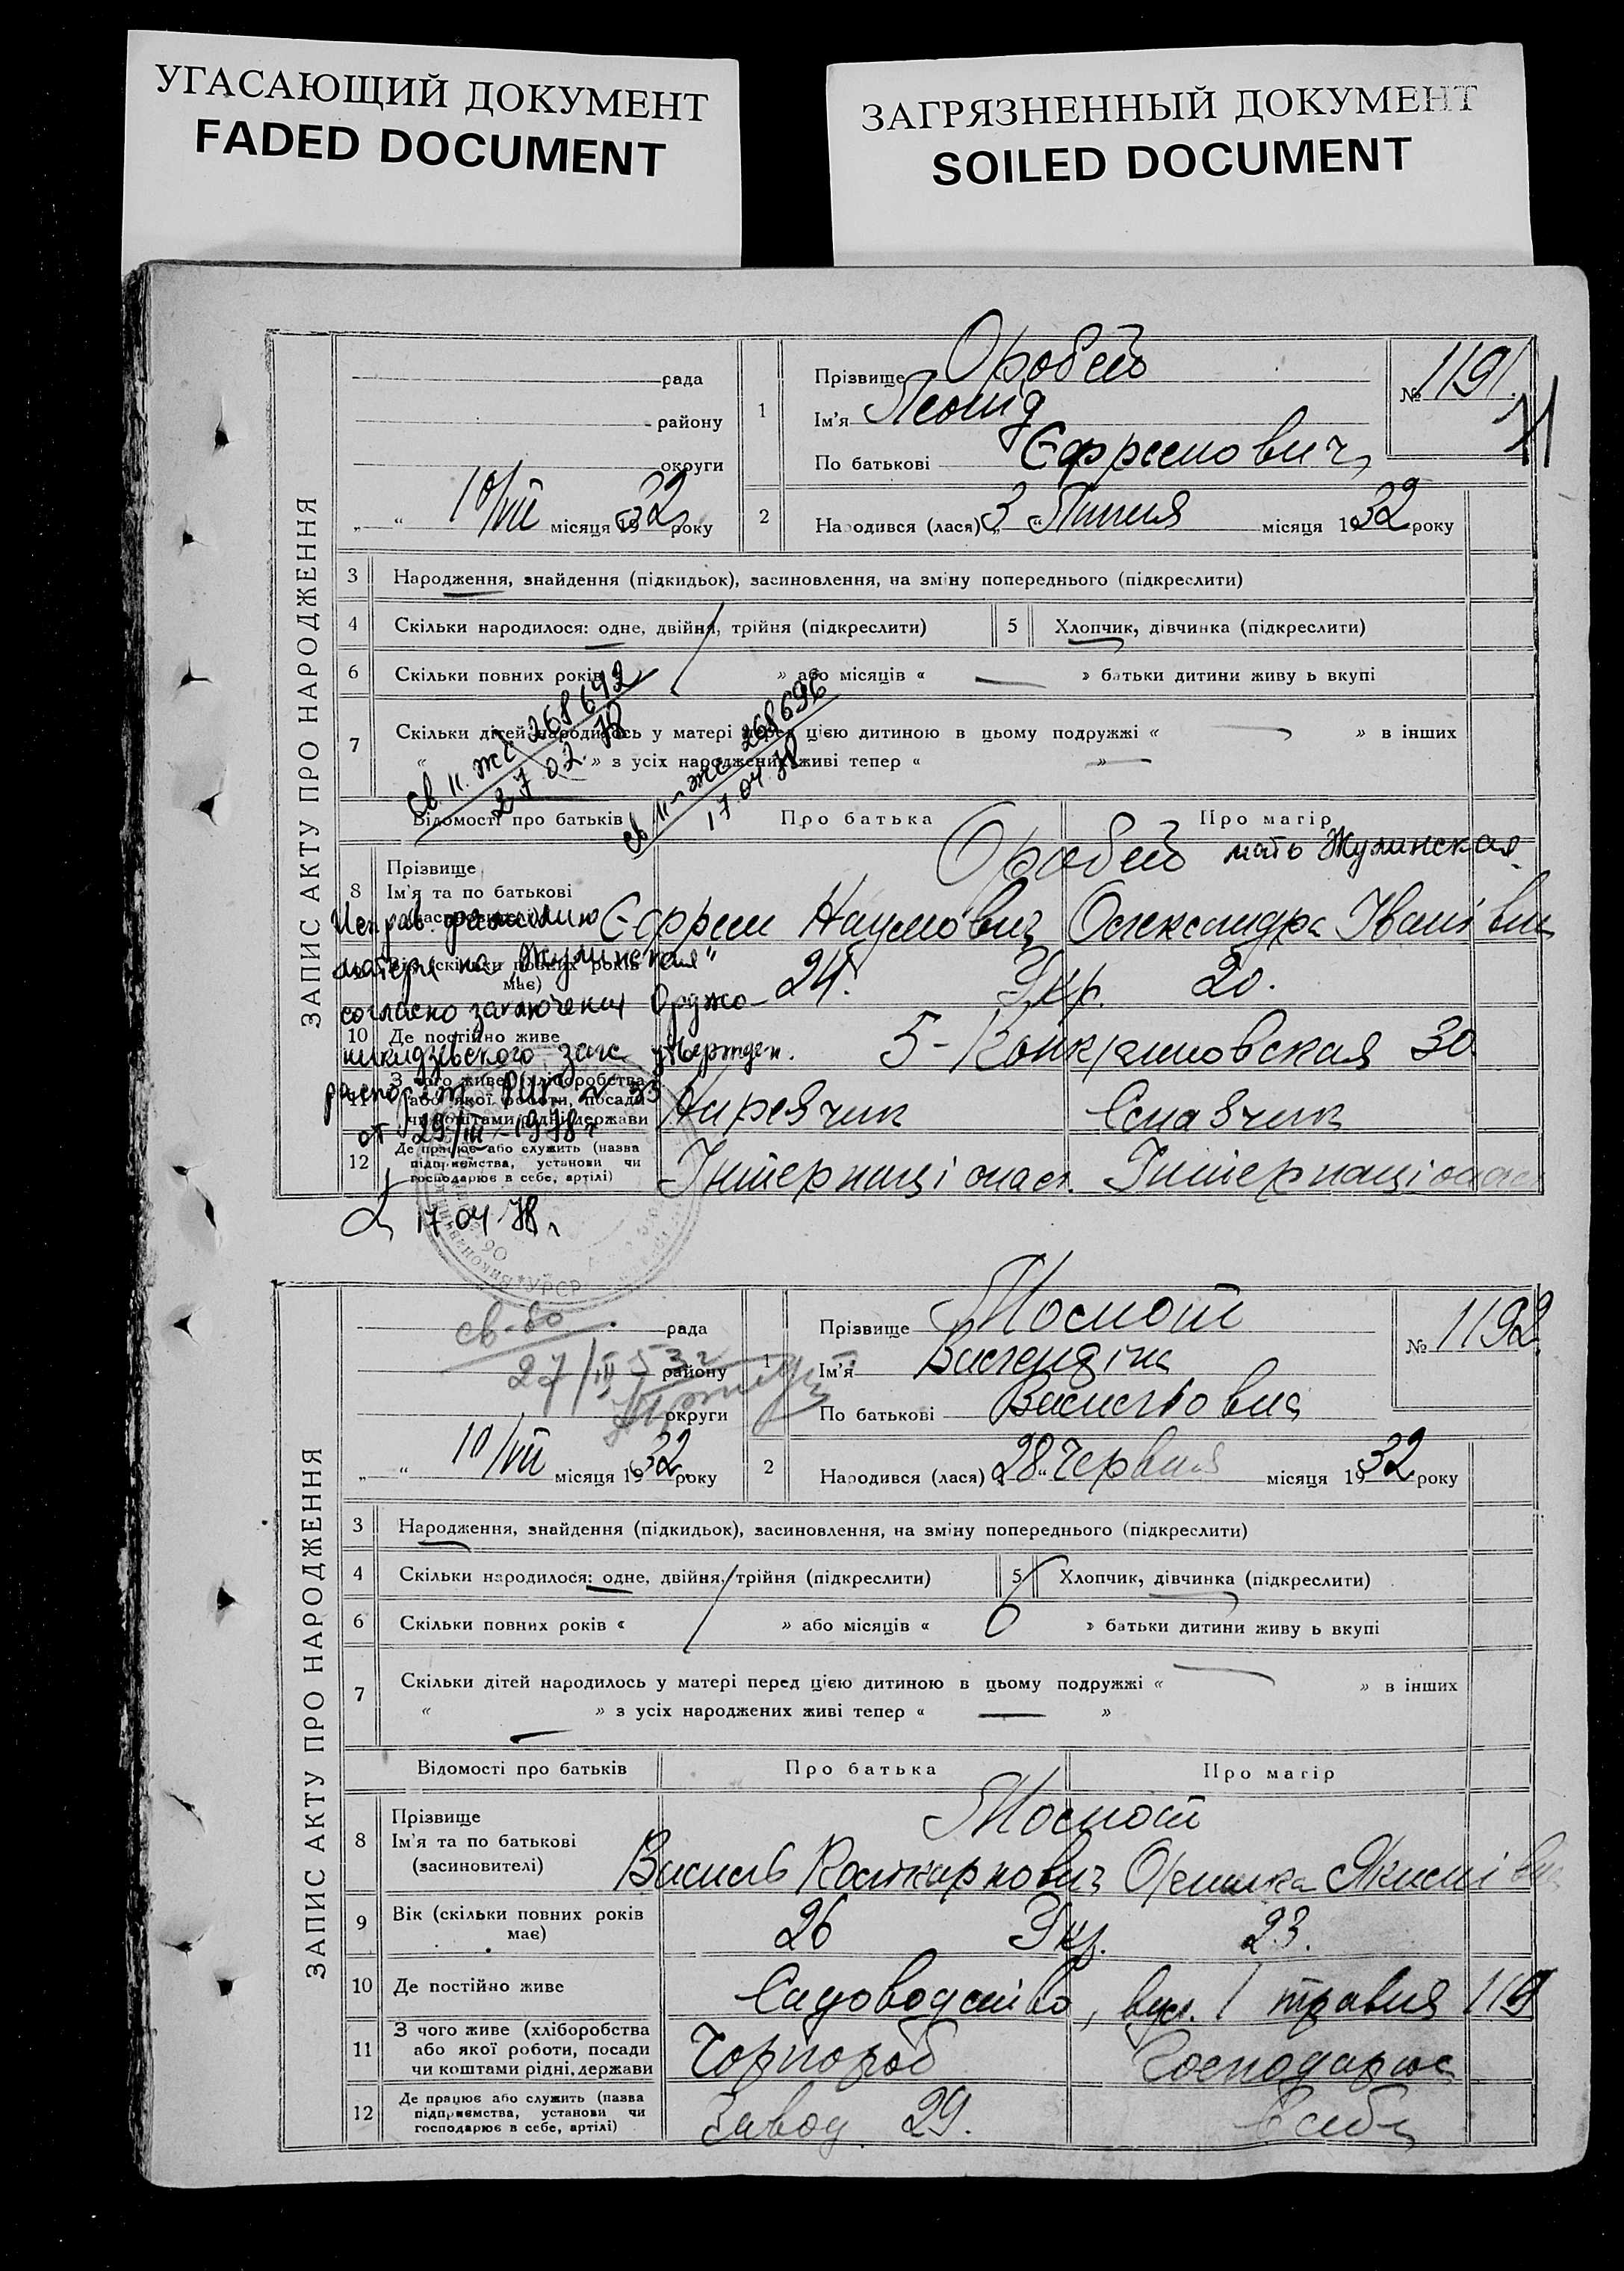 УГАСАЮЩИЙ ДОКУМЕНТ
FADED DOCUMENT
ЗАГРЯЗНЕННЫЙ ДОКУМЕНТ
SOILED DOCUMENT
ЗАПИС АКТУ ПРО НАРОДЖЕННЯ
рада
району
округи
„ “ 10/VII місяця 1932 року
1
Прізвище Оробей
Ім’я Леонід
По батькові Єфремович
№ 1191.
2
Народився (лася) 3 „ Липня місяця 1932 року
3 Народження, знайдення (підкидьок), засиновлення, на зміну попереднього (підкреслити)
4 Скільки народилося: одне, двійня, трійня (підкреслити)
5 Хлопчик, дівчинка (підкреслити)
6 Скільки повних років » або місяців « — » батьки дитини живу ь вкупі
св II-жс 268642
27.02.78
св II-жс 268696
17.04.78
7 Скільки дітей народилось у матері перед цією дитиною в цьому подружжі « » в інших
« » з усіх народжених живі тепер « »
Відомості про батьків Про батька Про матір
8 Прізвище Оробей мать Жулинская
Ім’я та по батькові
Єфрем Наумович Олександра Іванівна
Исправ. фамилию
матери на „Жулинская“
согласно заключения Орджо-
никидзевского загс утвержден.
от 29/III-1978 г
17.04.78 г
скільки повних років
має) 24. Укр. 20.
10 Де постійно живе 30
11 З чого живе (хліборобства
або якої роботи, посади
чи коштами рідні, держави
12 Де працює або служить (назва
підприємства, установи чи
господарює в себе, артілі) Інтернаціонал. Інтернаціонал
УРСР
ЗАПИС АКТУ ПРО НАРОДЖЕННЯ
св-во
27/III 53 г
рада
району
округи
„ “ 10/VII місяця 1932 року
1
Прізвище Мосполт
Ім’я Валендіна
По батькові Васильовна
№ 1192.
2
Народився (лася) 28 “ Червня місяця 1932 року
3 Народження, знайдення (підкидьок), засиновлення, на зміну попереднього (підкреслити)
4 Скільки народилося: одне, двійня, трійня (підкреслити)
5 Хлопчик, дівчинка (підкреслити)
6 Скільки повних років « » або місяців « 0 » батьки дитини живу ь вкупі
7 Скільки дітей народилось у матері перед цією дитиною в цьому подружжі « » в інших
« » з усіх народжених живі тепер « — »
Відомості про батьків Про батька Про матір
8 Прізвище
Ім’я та по батькові
(засиновителі) Василь Полікарпович Оришка Якимівна
9 Вік (скільки повних років
має) 26 Укр. 23.
10 Де постійно живе Садоводство, вул. 1 травня 119
11 З чого живе (хліборобства
або якої роботи, посади
чи коштами рідні, держави Чорнороб Господарює
12 Де працює або служить (назва
підприємства, установи чи
господарює в себе, артілі) Завод 29. в себе